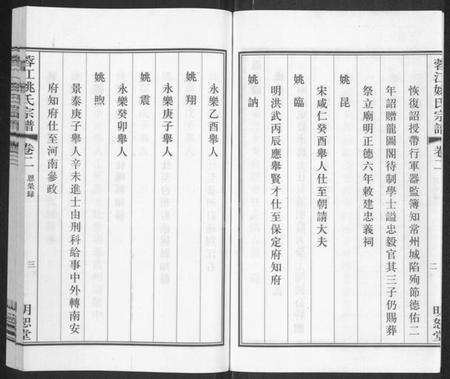 蓉江姚氏宗譜 卷二
二
明恕堂
恢復詔授帶行軍器監簿知常州城陷殉節德佑二
年詔贈龍圖閣待制學士謚忠毅官其三子仍賜葬
祭立廟明正德六年敕建忠義祠
姚昆
宋咸仁癸酉舉人仕至朝請大夫
姚臨
明洪武丙辰應舉賢才仕至保定府知府
姚訥
永樂乙酉舉人
姚翔
永樂庚子舉人
姚震
永樂癸卯舉人
姚煦
景泰庚子舉人辛未進士由刑科給事中外轉南安
府知府仕至河南參政
蓉江姚氏宗譜 卷二 恩榮錄
三
明恕堂